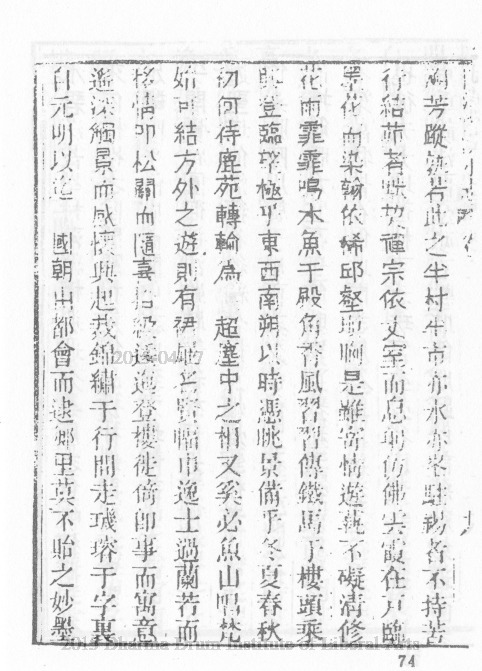 芳蹤孰若此之半村半市亦水亦峯駐錫者不持苦
行結茆者咸放禪宗依丈室而息靜仿佛雲霞在戶臨
墨花而染翰依稀邱壑 是雖寄情遊 不礙清修
花雨霏霏鳴木魚于殿角香風習習傳鐵馬于樓頭乘
興登臨望極乎東西南朔以時憑眺景備乎冬夏春秋
初何待鹿苑轉輪為 超塵中之相又奚必魚山唱梵
始可結方外之遊則有 名賢幅巾逸士過蘭若而
移情叩松關而隨喜拾級 登樓徙倚即事而寓意
遙深觸景而感懷興起裁錦繡于行間走璣瑢于字裏
自元明以迄 國朝由都會而逮鄉里莫不貽之妙墨
2014-04-17
2013 Dharma Drum Institute of Liberal Arts
74